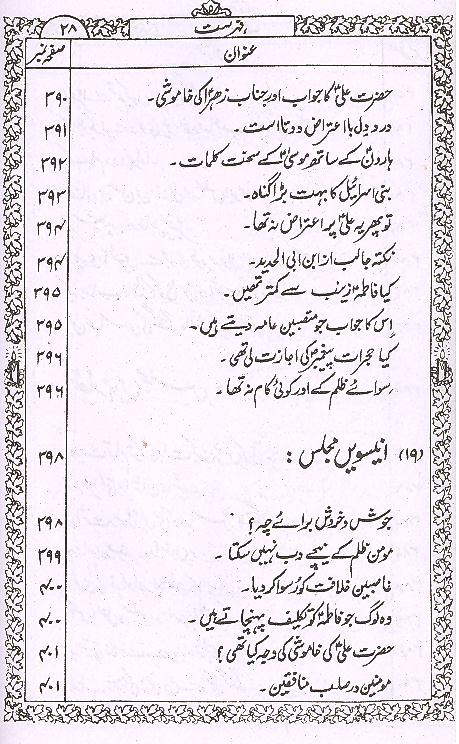 ۲۸ فہرست
عنوان صفحہ نمبر
حضرت علیؑ کا جواب اور جناب زھراؑ کی خاموشی۔ ۳۹۰
درد دل با اعتراض دوتا است۔ ۳۹۱
ہارونؑ کے ساتھ موسیٰؑ کے سخت کلمات۔ ۳۹۲
بنی اسرائیل کا بہت بڑا گناہ۔ ۳۹۳
تو پھر یہ علیؑ پر اعتراض نہ تھا۔ ۳۹۴
نکتہ جالب از ابن ابی الحدید۔ ۳۹۴
کیا فاطمہؑ زینب سے کمتر تھیں۔ ۳۹۵
اِس کا جواب جو متعصبین عامہ دیتے ہیں۔ ۳۹۵
کیا حجرات پیغمبرؐ کی اجازت لی تھی۔ ۳۹۶
سوائے ظلم کے اور کوئی کام نہ تھا۔ ۳۹۶
(۱۹) انیسویں مجلس : ۳۹۸
جوش و خروش برائے چہ؟ ۳۹۸
مومن ظلم کے نیچے دب نہیں سکتا۔ ۳۹۹
غاصبین خلافت کو رُسوا کر دیا۔ ۴۰۰
وہ لوگ جو فاطمہؑ کو تکلیف پہنچاتے ہیں۔ ۴۰۰
حضرت علیؑ کی خاموشی کی وجہ کیا تھی؟ ۴۰۱
مومنین در صلب منافقین۔ ۴۰۱